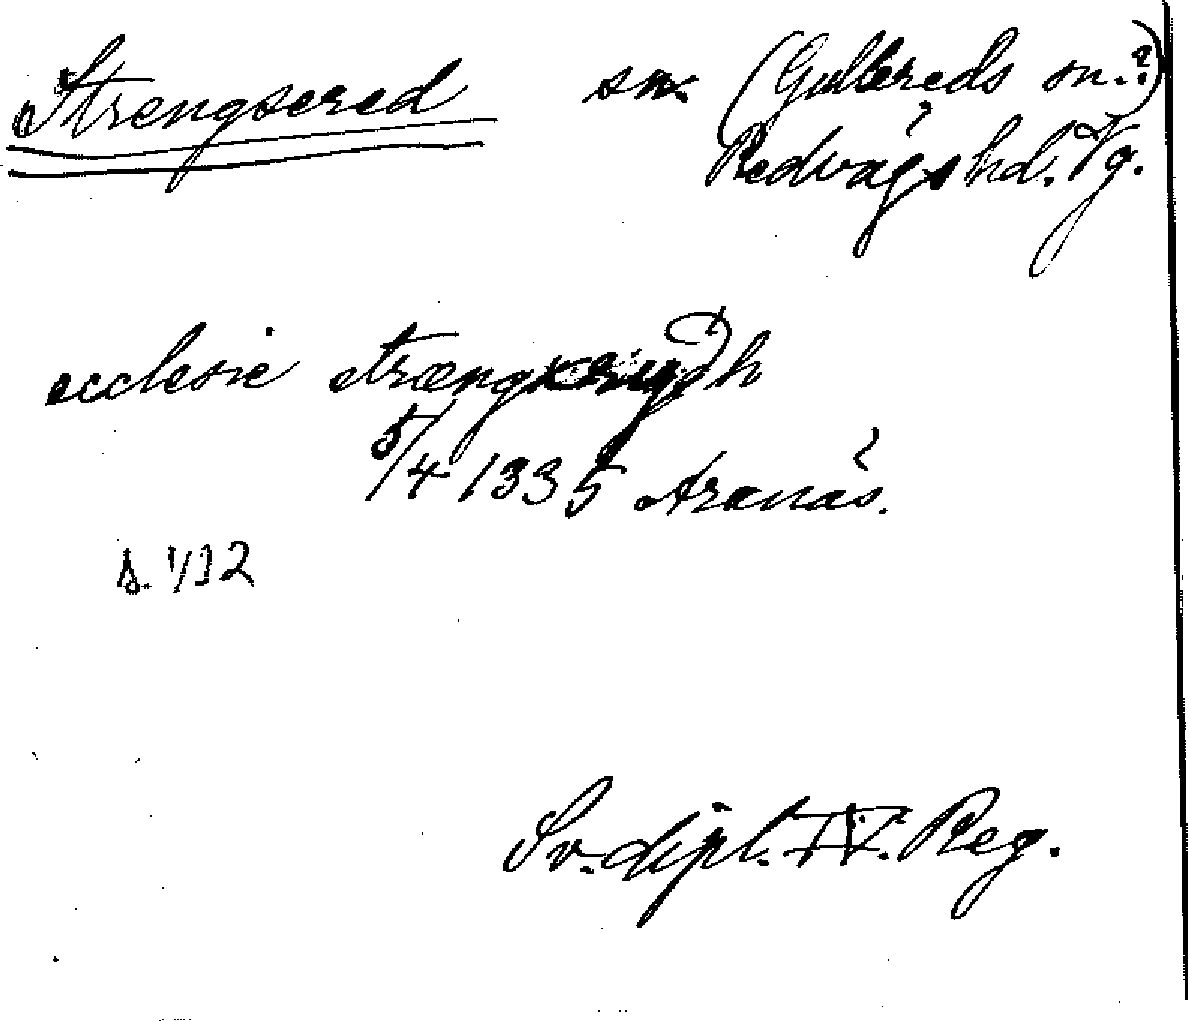 Strengsered sn. (Gullereds sn.?)
Redvägs hd. Vg.
ecclesie strængxerydh
5/4 1335 Aranäs.
s. 432
Sv. dipl. IV. Reg.